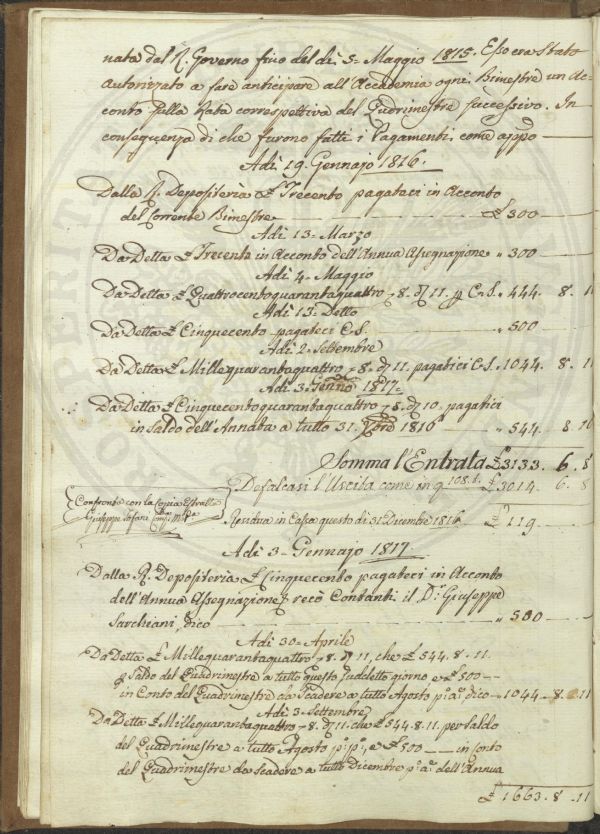 nata dal R. Governo fino del dì 5. Maggio 1815. Esso era Stato
Autorizzato a fare anticipare all'Accademia ogni Bimestre un Ac-
conto sulla Rata correspettiva del Quadrimestre successivo. In
conseguenza di che furono fatti i Pagamenti come app.o
Adì 19. Gennajo 1816.
Dalla R. Depositerìa £ Trecento pagateci in Acconto
del corrente Bimestre £ 300
Adì 13. Marzo
Da Detta £ Trecento in Acconto dell'Annua Assegnazione " 300
Adì 4. Maggio
Da Detta £ Quattrocentoquarantaquattro 8. d 11. p C. S. " 444. 8. 11
Adì 13. Detto
Da Detta £ Cinquecento pagateci C. S. " 500
Adì 2. Settembre
Da Detta £ Millequarantaquattro 8. d 11. pagatici C. S. " 1044. 8. 11
Adì 3. Genn.o 1817.
Da Detta £ Cinquecentoquarantaquattro 8. d 10. pagatici
in saldo dell'Annata a tutto 31. Xbre 1816 " 544. 8. 10
Somma l'Entrata £ 3133. 6. 8
Defalcasi l'Uscita come in q. 108.t £ 3014. 6. 8
Confronta con la Copia Estratta
Giuseppe
Residua in Cassa questo dì 31 Dicembre 1816. £ 119
Adì 3. Gennajo 1817
Dalla R. Depositerìa £ Cinquecento pagateci in Acconto
dell'Annua Assegnazione, e recò Contanti il D.r Giuseppe
Sarchiani, dico " 500
Adì 30. Aprile
Da Detta £ Millequarantaquattro 8. d 11, che £ 544. 8. 11.
p Saldo del Quadrimestre a tutto questo suddetto giorno e £ 500
in Conto del Quadrimestre da Scadere a tutto Agosto p.o a.o dico 1044. 8. 11
Adì 3. Settembre
Da Detta £ Millequarantaquattro 8. d 11. che £ 544. 8. 11. per Saldo
del Quadrimestre a tutto Agosto p.o p.o, e £ 500 in Conto
del Quadrimestre da scadere a tutto Dicembre p.o a.o dell'Annua
£ 1663. 8. 11